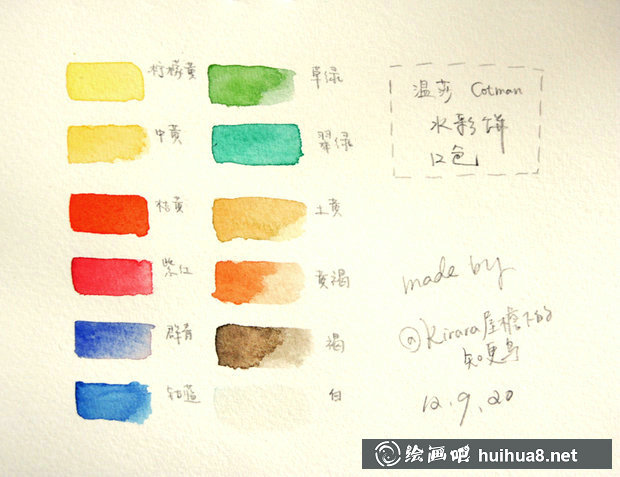 柠檬黄
草绿
中黄
翠绿
桔黄
土黄
紫红
黄褐
群青
褐
钴蓝
白
温莎 Cotman
水彩饼
12色
made by
@Kirara屋檐下的
知更鸟
12.9.20
绘画吧 huihua8.net